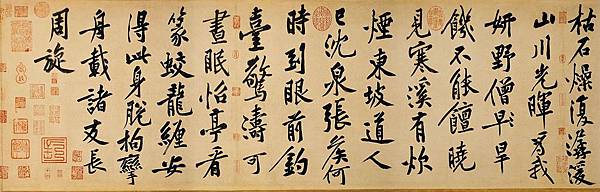 枯石燥復潺湲
山川光暉為我
妍野僧早旱
飢不能饘曉
見寒溪有炊
煙東坡道人
已沈泉張侯何
時到眼前釣
臺驚濤可
晝眠怡亭看
篆蛟龍纏安
得此身脫拘攣
舟載諸友長
周旋